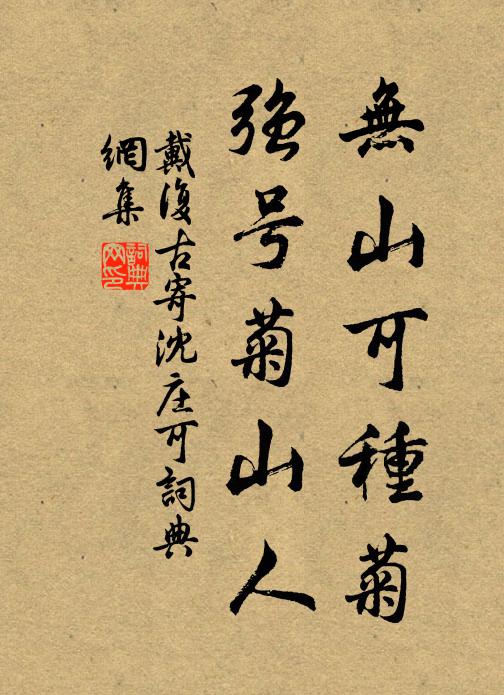 無山可種菊
强号菊山人
戴復古寄沈庄可詞典
網集
詞典
网印